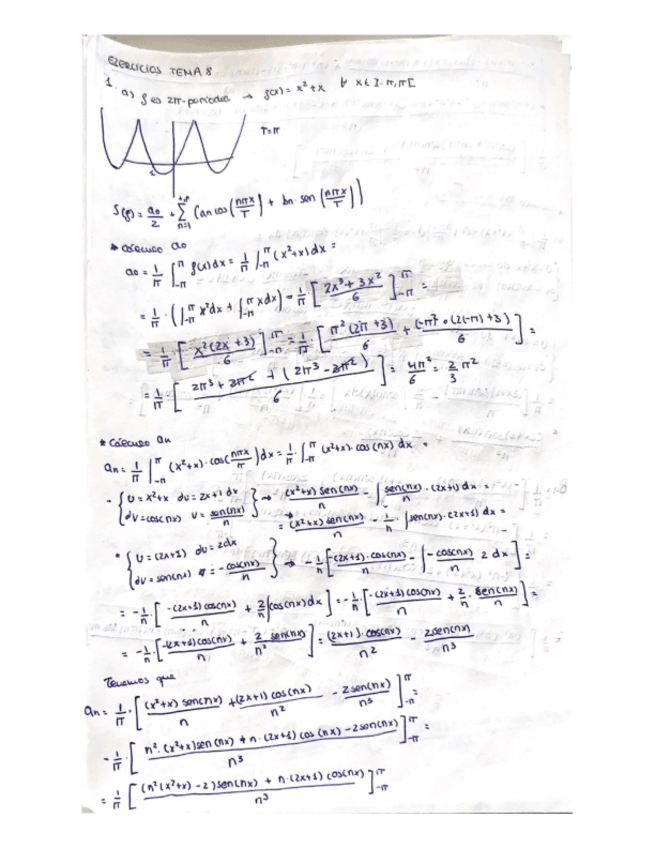 EJERCICIOS TEMA 8
1. a) f es 2π-periódica → f(x) = x² + x ∀ x ∈ ]-π, π[
T=π
S(f) = a₀/2 + Σ_{n=1}^{+∞} (an cos(nπx/T) + bn · sen(nπx/T))
* Cálculo a₀
a₀ = 1/π ∫_{-π}^{π} f(x)dx = 1/π ∫_{-π}^{π} (x²+x)dx =
= 1/π · (∫_{-π}^{π} x²dx + ∫_{-π}^{π} x dx) = 1/π [(2x³+3x²)/6]_{-π}^{π} =
= 1/π [x²(2x+3)/6]_{-π}^{π} = 1/π · [π²(2π+3)/6 + (-π)² · (2(-π)+3)/6] =
= 1/π · [(2π³ + 3π² + (2π³ - 3π²))/6] = 4π²/6 = 2/3 π²
* Cálculo an
an = 1/π ∫_{-π}^{π} (x²+x) · cos(nπx/π)dx = 1/π · ∫_{-π}^{π} (x²+x) · cos(nx) dx =
- {U = x²+x du = 2x+1 dx → (x²+x) sen(nx)/n - ∫ sen(nx)/n · (2x+1)dx =
dV = cos(nx) V = sen(nx)/n} = (x²+x) sen(nx)/n - 1/n · ∫sen(nx) · (2x+1) dx =
* {U = (2x+1) dU = 2dx → -1/n [-(2x+1) · cos(nx)/n - ∫ -cos(nx)/n 2 dx] =
dV = sen(nx) V = -cos(nx)/n}
= -1/n · [-(2x+1) cos(nx)/n + 2/n ∫cos(nx)dx] = -1/n · [-(2x+1) cos(nx)/n + 2/n · sen(nx)/n] =
= -1/n · [-(2x+1)cos(nx)/n + 2 sen(nx)/n²] = (2x+1) · cos(nx)/n² - 2sen(nx)/n³
Tenemos que
an = 1/π · [(x²+x) sen(nx)/n + (2x+1) cos(nx)/n² - 2sen(nx)/n³]_{-π}^{π} =
= 1/π · [(n² · (x²+x)sen(nx) + n · (2x+1) cos(nx) - 2sen(nx))/n³]_{-π}^{π} =
= 1/π [((n²(x²+x) - 2)sen(nx) + n · (2x+1) cos(nx))/n³]_{-π}^{π}